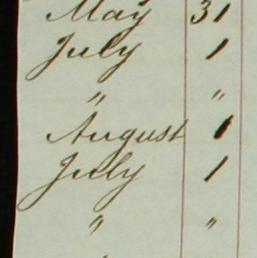 May 31
July 1
" "
August 1
July 1
" "